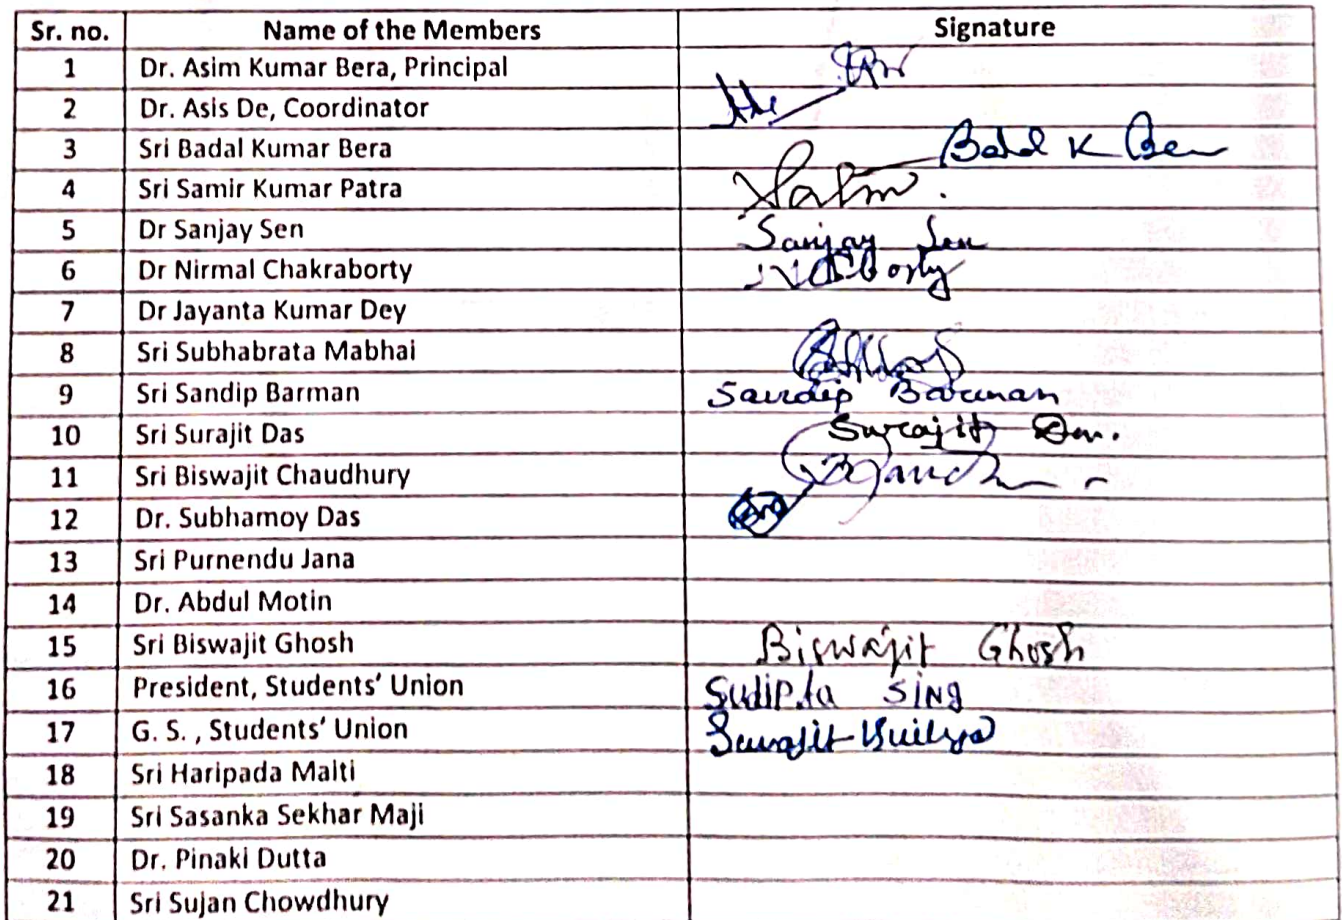 Sr. no. Name of the Members Signature
1 Dr. Asim Kumar Bera, Principal
2 Dr. Asis De, Coordinator
3 Sri Badal Kumar Bera Badal K Bera
4 Sri Samir Kumar Patra
5 Dr Sanjay Sen Sanjay Sen
6 Dr Nirmal Chakraborty
7 Dr Jayanta Kumar Dey
8 Sri Subhabrata Mabhai
9 Sri Sandip Barman Sandip Barman
10 Sri Surajit Das Surajit Das.
11 Sri Biswajit Chaudhury
12 Dr. Subhamoy Das
13 Sri Purnendu Jana
14 Dr. Abdul Motin
15 Sri Biswajit Ghosh Biswajit Ghosh
16 President, Students' Union Sudipta SiNg
17 G. S. , Students' Union
18 Sri Haripada Maiti
19 Sri Sasanka Sekhar Maji
20 Dr. Pinaki Dutta
21 Sri Sujan Chowdhury